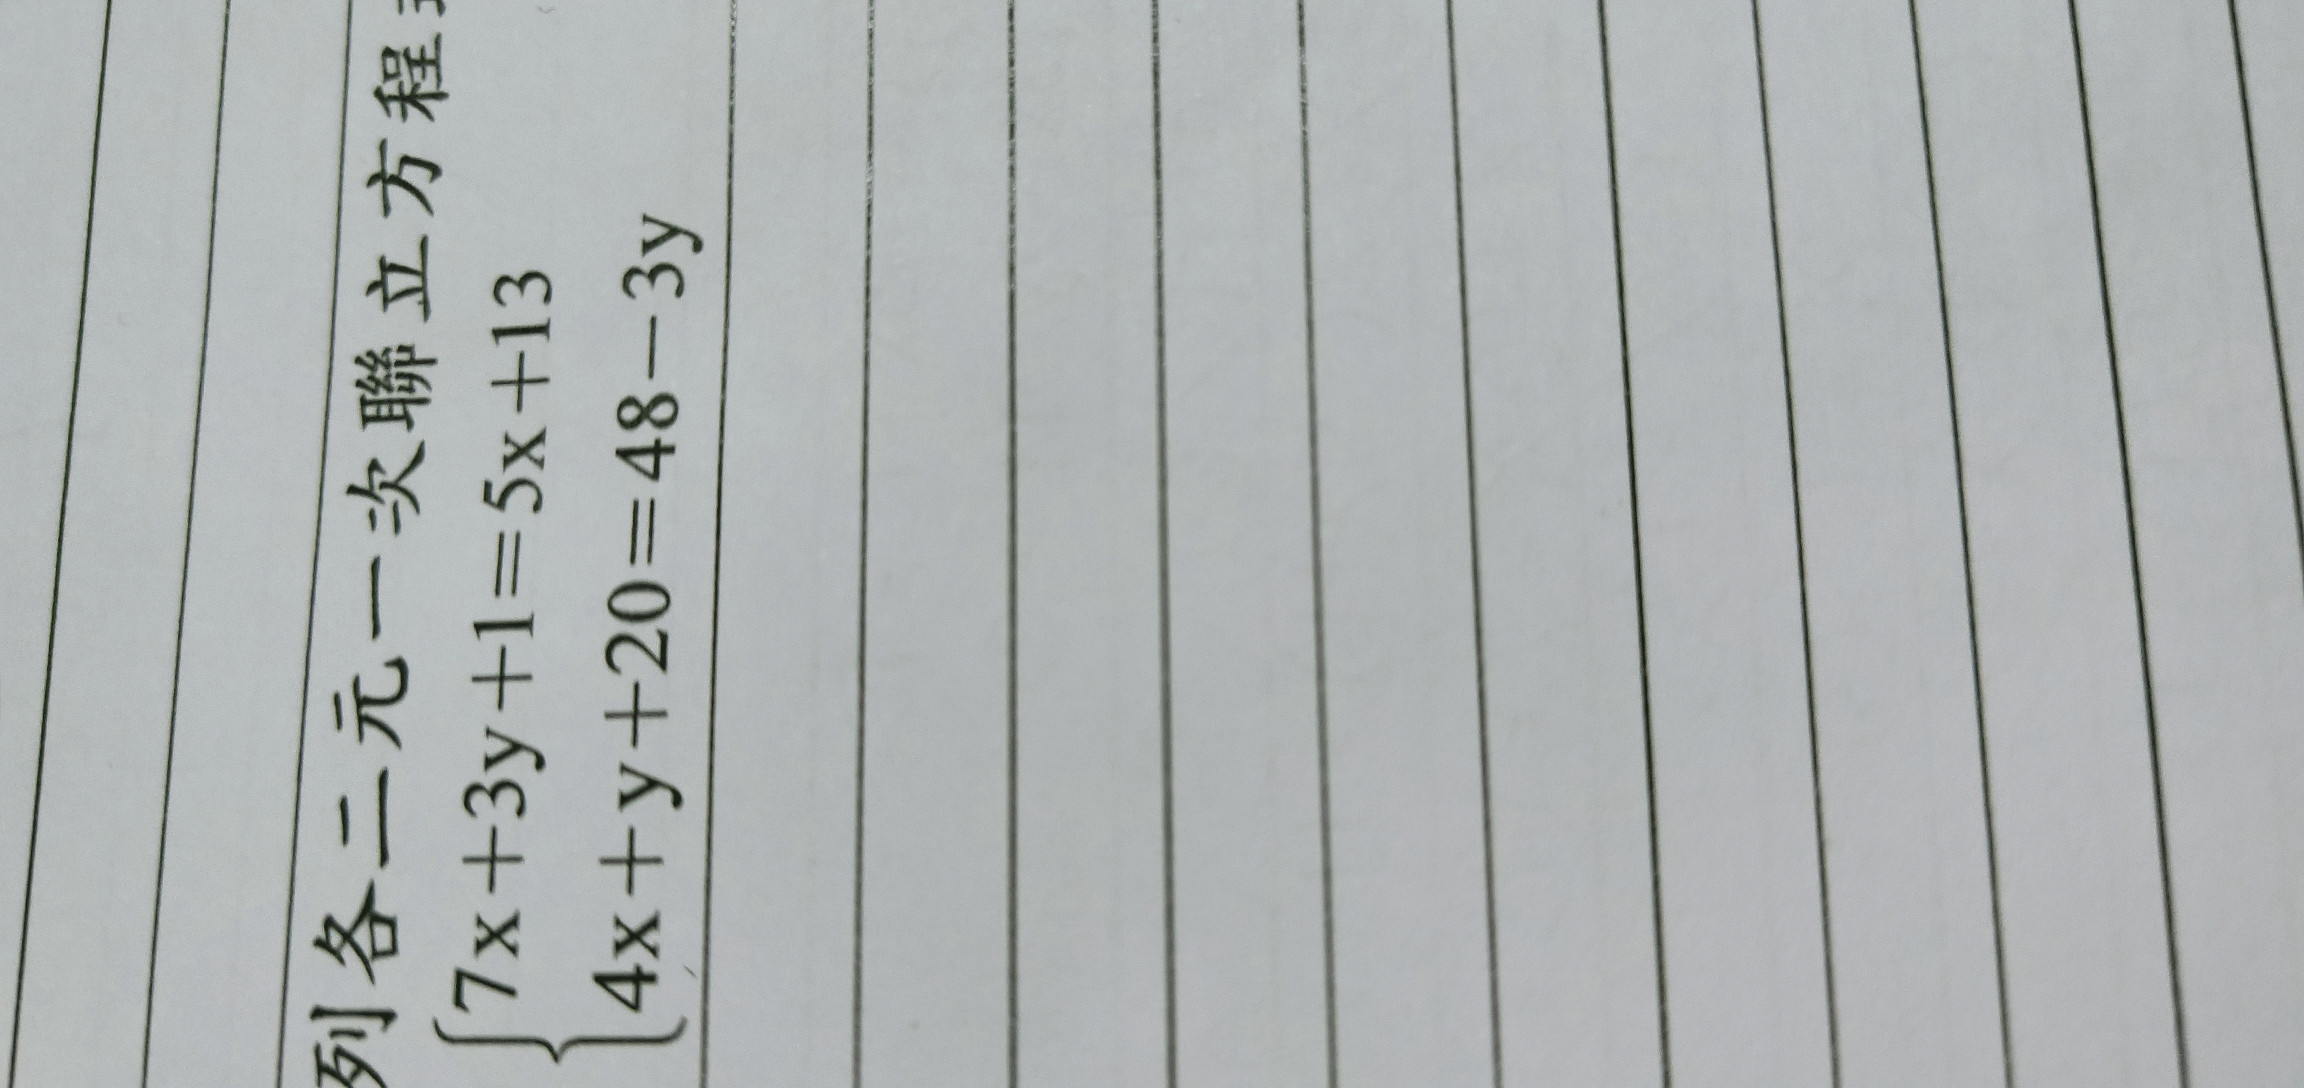 列各二元一次聯立方程
7x+3y+1=5x+13
4x+y+20=48-3y